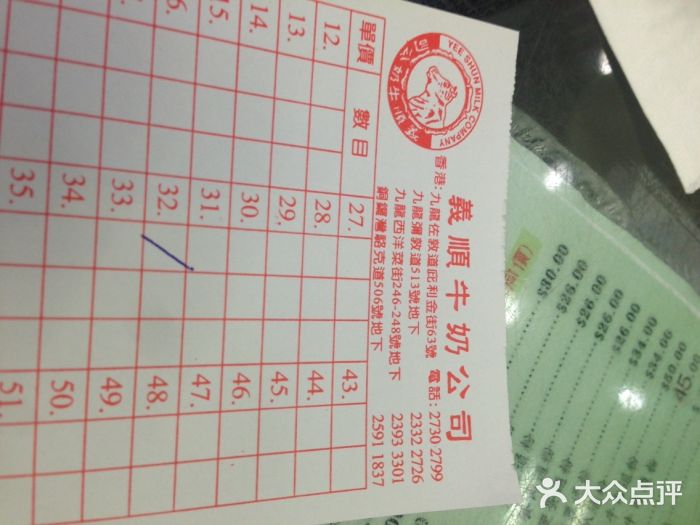 YEE SHUN MILK COMPANY
義順牛奶公司
香港:九龍佐敦道庇利金街63號 電話: 2730 2799
九龍彌敦道513號地下 2332 2726
九龍西洋菜街246-248號地下 2393 3301
銅鑼灣駱克道506號地下 2591 1837
單價 數目
12. 27. 43.
13. 28. 44.
14. 29. 45.
15. 30. 46.
31. 47.
32. 48.
33. 49.
34. 50.
35. 51.
$30.00
$26.00
$26.00
$26.00
$34.00
$34.00
大众点评